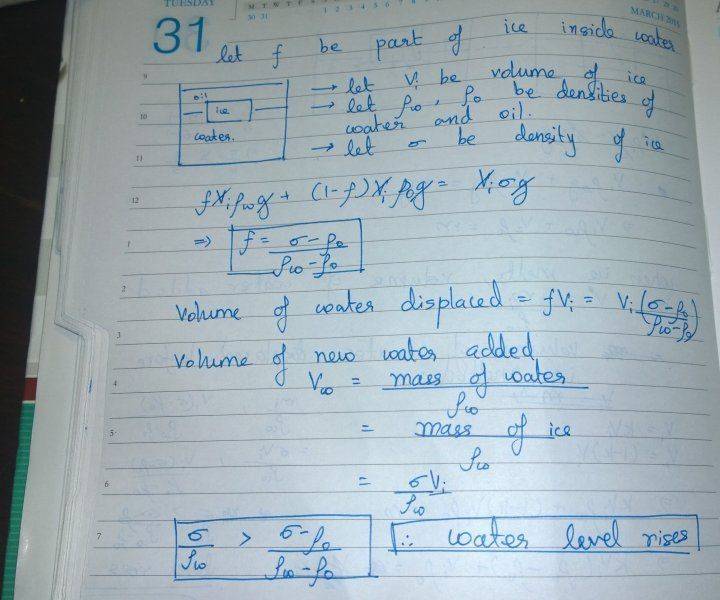 TUESDAY
M T W T
30 31
1 2 3 4 5 6 7 8
MARCH 2015
31
let f be part of ice inside water
9
oil
→ let Vi be volume of ice
ice
→ let ρω, ρo be densities of
10
water.
water and oil.
→ let σ be density of ice
11
12
fViρωg + (1-f)Viρog = Viσg
1
⇒ f = (σ-ρo)/(ρω-ρo)
2
Volume of water displaced = fVi = Vi(σ-ρo)/(ρω-ρo)
3
Volume of new water added
4
Vω = mass of water / ρω
5
= mass of ice / ρω
6
= σVi / ρω
7
σ/ρω > (σ-ρo)/(ρω-ρo) ∴ water level rises